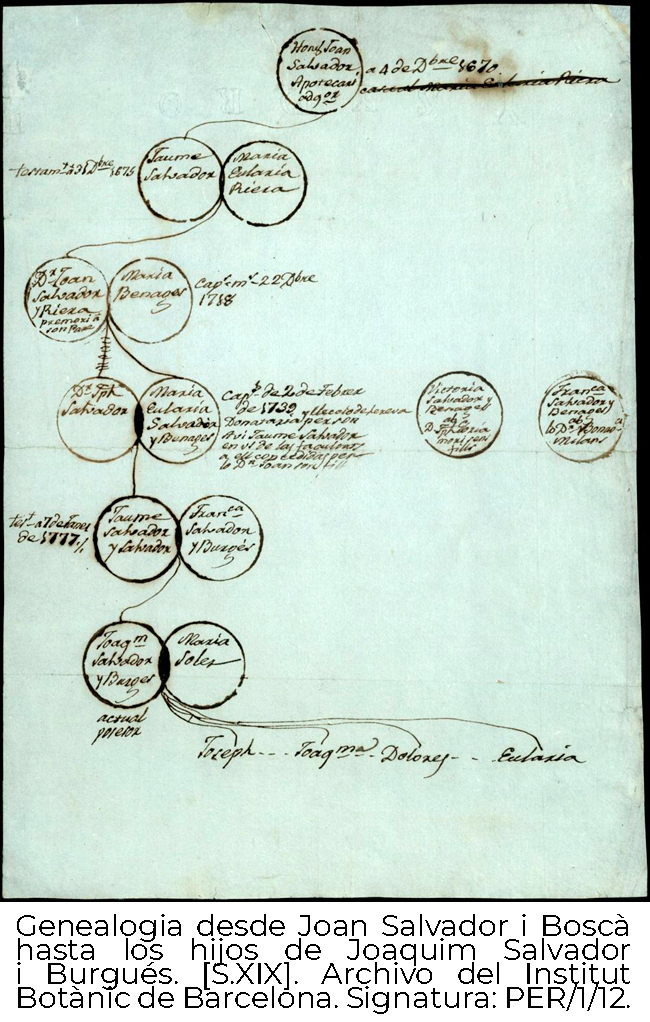 Honᵇ Joan
Salvador
Apotecari
a 4 de Dᵇʳᵉ 1670
casat Maria Eularia Riera
Jaume
Salvador
Maria
Eularia
Riera
testamᵗ a 31 Dᵇʳᵉ 1675
Dʳ Joan
Salvador
y Riera
premorí a
son Pare
Maria
Benages
Capˢ mˡˢ 22 Dbre
1718
Dʳ Jph
Salvador
Maria
Eularia
Salvador
y Benages
Capˢ de 2 de Febrer
de 1739
Donataria per son
Avi Jaume Salvador
lo Dʳ Joan son fill
Victoria
Salvador y
Benages
Franᶜᵃ
Salvador y
Benages
Milans
testᵗ a 7 de Janer
de 1777
Jaume
Salvador
y Salvador
Franᶜᵃ
Salvador
y Burgés
Joaqᵐ
Salvador
y Burges
Maria
Soler
actual
Joseph - - - Joaqᵐᵃ - Dolores - - Eularia
Genealogia desde Joan Salvador i Boscà
hasta los hijos de Joaquim Salvador
i Burgués. [S.XIX]. Archivo del Institut
Botànic de Barcelona. Signatura: PER/1/12.